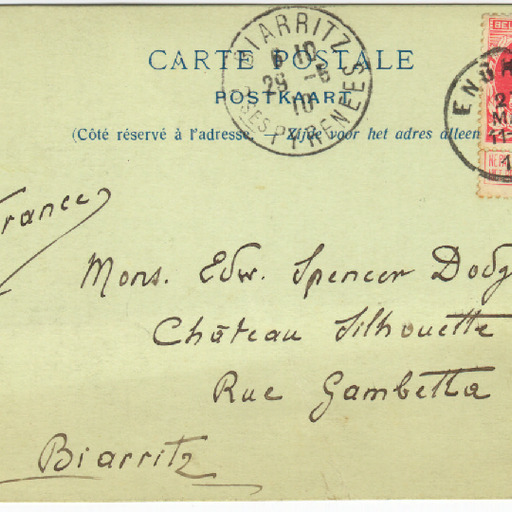 CARTE POSTALE
POSTKAART
(Côté réservé à l'adresse. — Zijde voor het adres alleen
BIARRITZ
6 10
29 -5
10
BSES PYRENEES
BEL
ENGH
2
11-
1
NE P
France
Mons. Edw. Spencer Dodg
Château Silhouette
Rue Gambetta
Biarritz